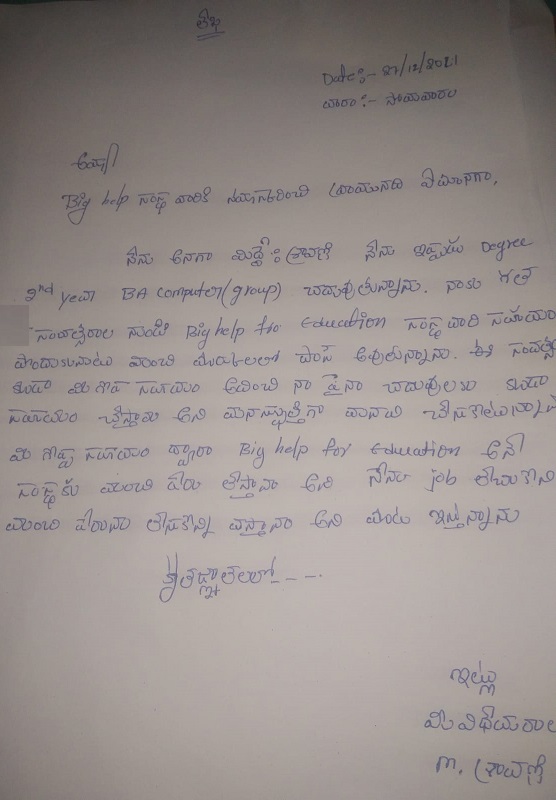 లేఖ
Date:- 27/12/2021
వారం:- సోమవారం
అయ్యా
Big help సంస్థ వారికి నమస్కరించి వ్రాయునది ఏమనగా,
నేను అనగా మిడ్డె: శ్రావణి నేను ఇప్పుడు Degree
2nd year BA computer(group) చదువుతున్నాను. నాకు గత
సంవత్సరాల నుండి Big help for Education సంస్థ వారి సహాయం
పొందుకుంటూ మంచి మార్కులతో పాస్ అవుతున్నాను. ఈ సంవత్సరం
కూడా మీ సహాయం అందించి నా పైనా చదువులకు కూడా
సహాయం చేస్తారు అని మనస్పూర్తిగా మానవి చేసుకొంటున్నాను
మీ గొప్ప సహాయం ద్వారా Big help for education అనే
సంస్థకు మంచి పేరు తెస్తానా అని నేను job తెచుకొని
మంచి పేరును తీసుకొన్ని వస్తానా అని మాట ఇస్తున్నాను
కృతజ్ఞాతలతో - - -.
ఇట్లు
మీ విధేయరాలు
M. శ్రావణి